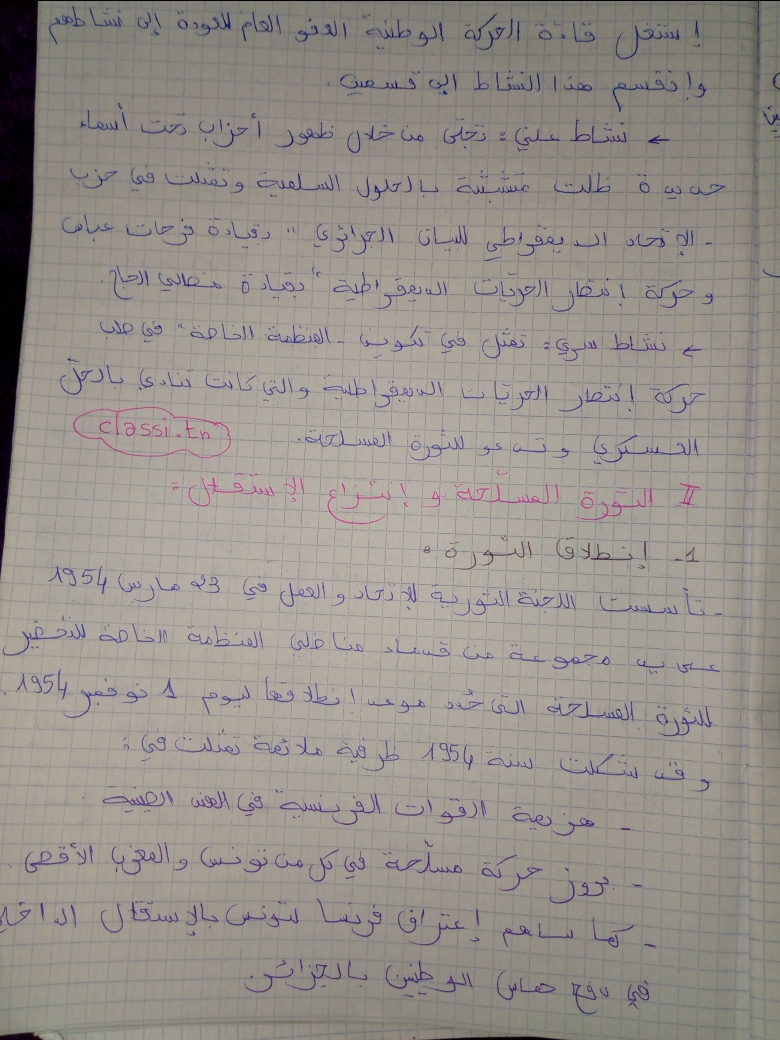 إستغل قادة الحركة الوطنية العفو العام للعودة إلى نشاطهم
وإنقسم هذا النشاط إلى قسمين.
← نشاط علني: تجلّى من خلال ظهور أحزاب تحت أسماء
جديدة ظلت متشبّثة بالحلول السلمية وتمثلت في حزب
- الإتحاد الديمقراطي للبيان الجزائري " بقيادة فرحات عباس
وحركة إنتصار الحريّات الديمقراطية " بقيادة مصالي الحاج.
← نشاط سري: تمثل في تكوين - المنظمة الخاصة " في صلب
حركة إنتصار الحريّات الديمقراطية والتي كانت تنادي بالحلّ
العسكري وتدعو للثورة المسلحة.
classi.tn
II الثورة المسلّحة و إنتزاع الإستقلال:
1. إنطلاق الثورة:
- تأسست اللجنة الثورية للإتحاد والعمل في 23 مارس 1954
على يد مجموعة من قدماء مناضلي المنظمة الخاصة للتحضير
للثورة المسلحة التي حُدد موعد انطلاقها ليوم 1 نوفمبر 1954.
وقد شكلت سنة 1954 ظرفية ملائمة تمثلت في:
- هزيمة القوات الفرنسية في الهند الصينية.
- بروز حركة مسلّحة في كل من تونس والمغرب الأقصى.
- كما ساهم إعتراف فرنسا لتونس بالإستقلال الداخلي
في دفع حماس الوطنيين بالجزائر.